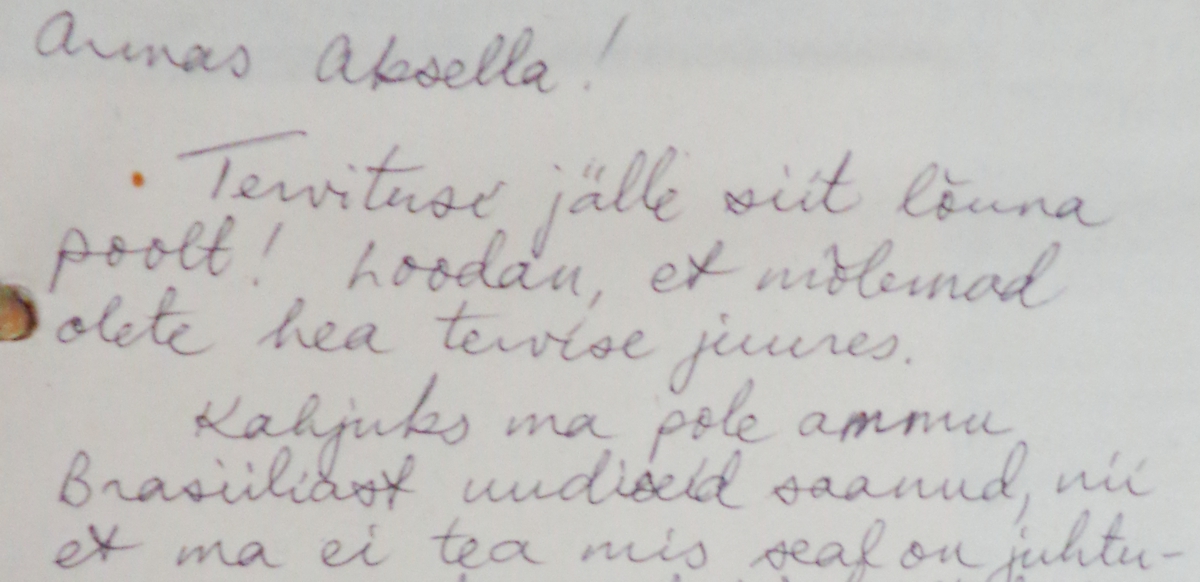 Armas Aksella!
Tervitusi jälle siit lõuna
poolt! Loodan, et mõlemad
olete hea tervise juures.
Kahjuks ma pole ammu
Brasiiliast uudiseid saanud, nii
et ma ei tea mis seal on juhtu-